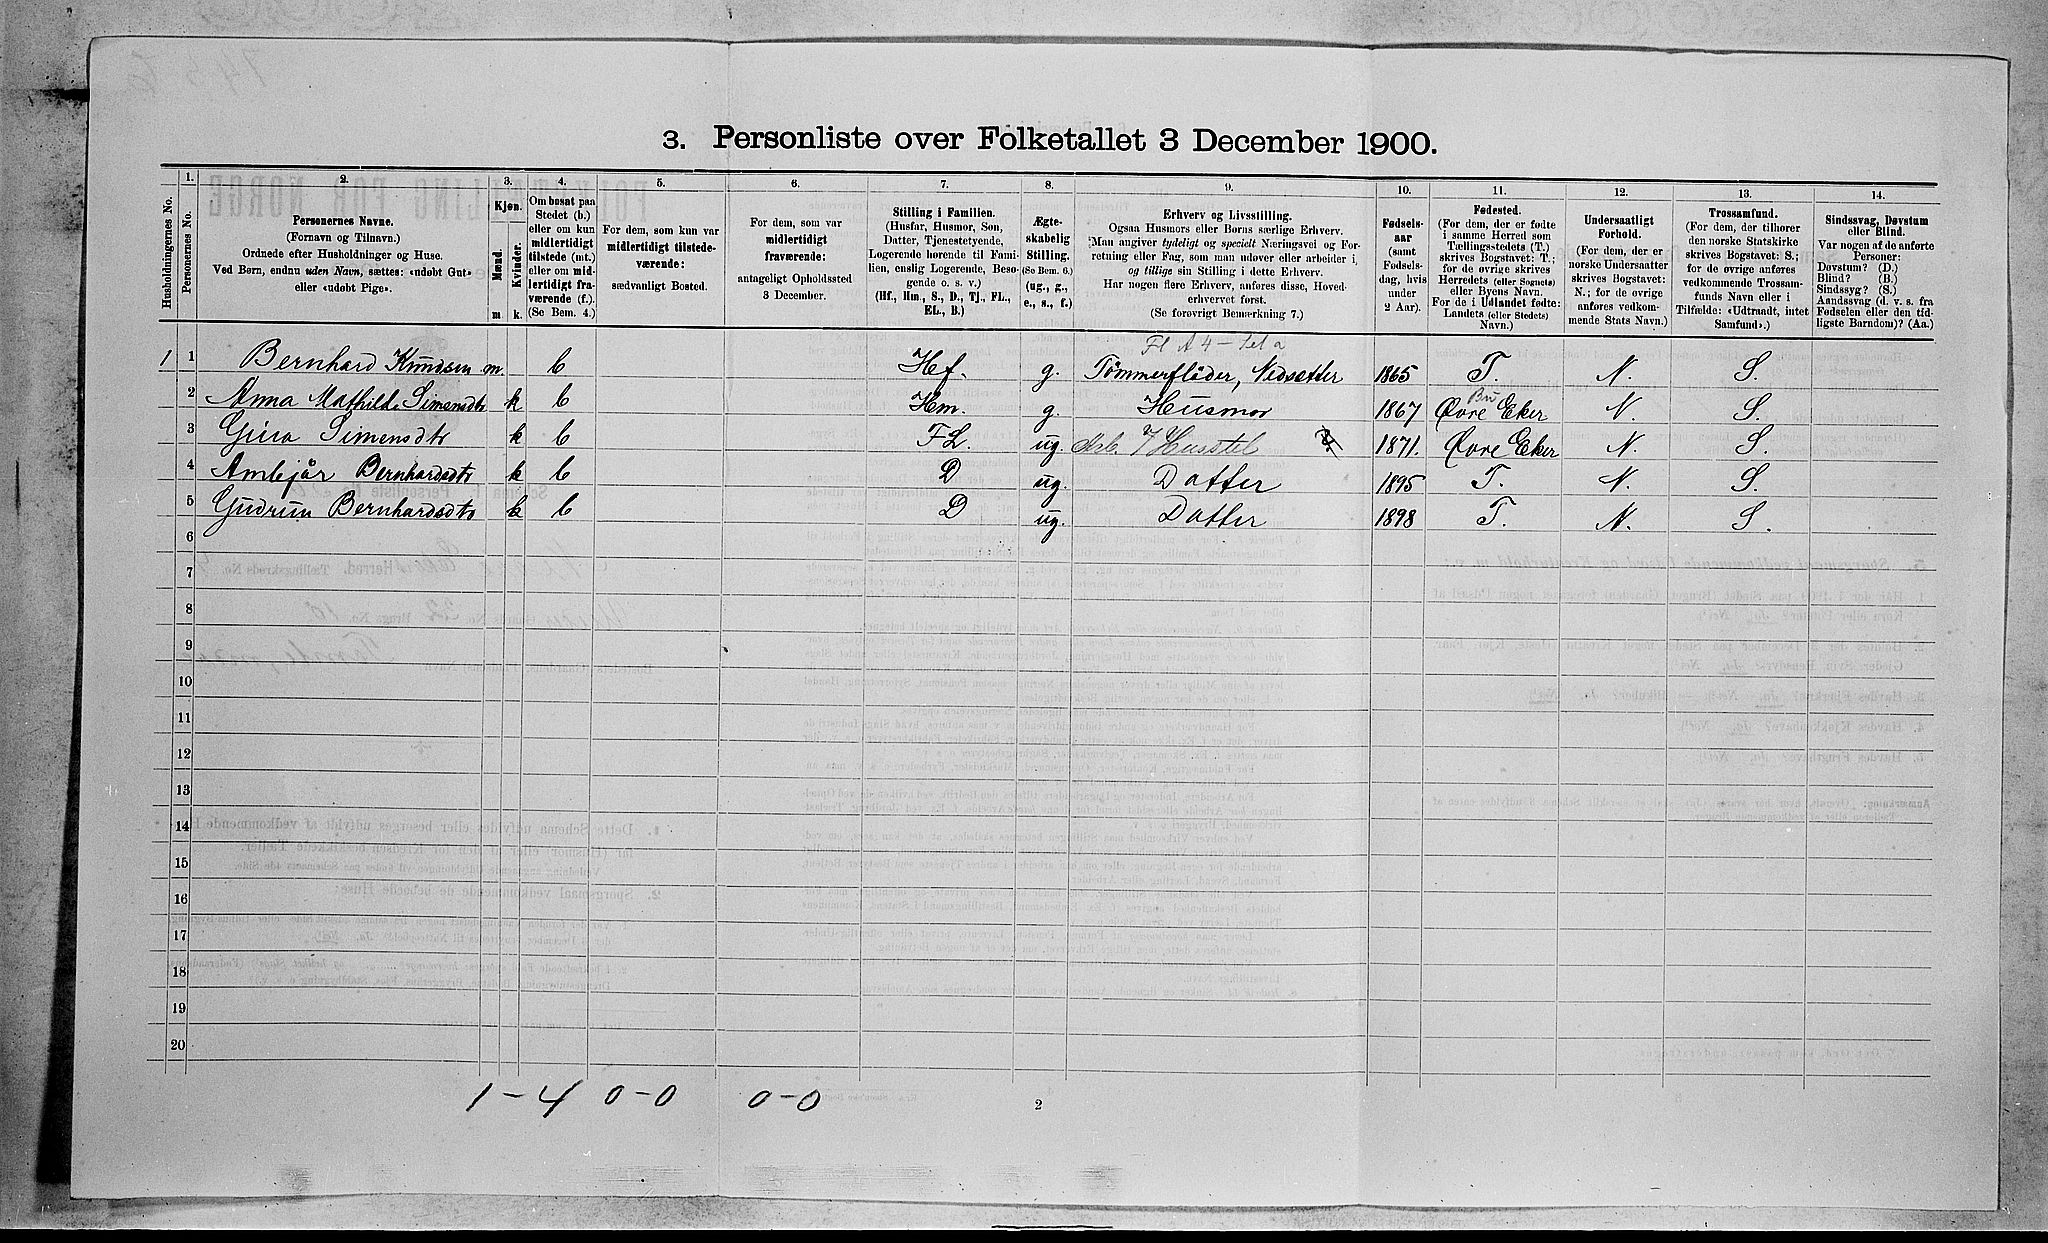 3. Personliste over Folketallet 3 December 1900.
Husholdningernes No.
1. Personernes No.
2. Personernes Navne.
(Fornavn og Tilnavn.)
Ordnede efter Husholdninger og Huse.
Ved Børn, endnu uden Navn, sættes: «udøbt Gut»
eller «udøbt Pige».
3. Kjøn.
Mænd. m.
Kvinder. k.
4. Om bosat paa
Stedet (b.)
eller om kun
midlertidigt
tilstede (mt.)
eller om mid-
lertidigt fra-
værende (f.).
(Se Bem. 4.)
5. For dem, som kun var
midlertidigt tilstede-
værende:
sædvanligt Bosted.
6. For dem, som var
midlertidigt
fraværende:
antageligt Opholdssted
3 December.
7. Stilling i Familien.
(Husfar, Husmor, Søn,
Datter, Tjenestetyende,
Logerende hørende til Fami-
lien, enslig Logerende, Besø-
gende o. s. v.)
(Hf., Hm., S., D., Tj., FL.,
EL., B.)
8. Ægte-
skabelig
Stilling.
(Se Bem. 6.)
(ug., g.,
e., s., f.)
9. Erhverv og Livsstilling.
Ogsaa Husmors eller Børns særlige Erhverv.
Man angiver tydeligt og specielt Næringsvei og For-
retning eller Fag, som man udøver eller arbeider i,
og tillige sin Stilling i dette Erhverv.
Har nogen flere Erhverv, anføres disse, Hoved-
erhvervet først.
(Se forøvrigt Bemærkning 7.)
10. Fødsels-
aar
(samt
Fødsels-
dag, hvis
under
2 Aar).
11. Fødested.
(For dem, der er fødte
i samme Herred som
Tællingsstedets (T.)
skrives Bogstavet: T.;
for de øvrige skrives
Herredets (eller Sognets)
eller Byens Navn.
For de i Udlandet fødte:
Landets (eller Stedets)
Navn.)
12. Undersaatligt
Forhold.
(For dem, der er
norske Undersaatter
skrives Bogstavet:
N.; for de øvrige
anføres vedkom-
mende Stats Navn.)
13. Trossamfund.
(For dem, der tilhører
den norske Statskirke
skrives Bogstavet: S.;
for de øvrige anføres
vedkommende Trossam-
funds Navn eller i
Tilfælde: «Udtraadt, intet
Samfund».)
14. Sindssvag, Døvstum
eller Blind.
Var nogen af de anførte
Personer:
Døvstum? (D.)
Blind? (B.)
Sindssyg? (S.)
Aandssvag (d. v. s. fra
Fødselen eller den tid-
ligste Barndom)? (Aa.)
1 1 Bernhard Knudsen m. b Hf. g. Tømmerfløder, Nedsætter 1865 T. N. S.
2 Anna Mathilde Simensdtr k b Hm. g. Husmor 1867 Øvre Eker N. S.
3 Gina Simensdtr k b FL. ug. Husstel 1871. Øvre Eker N. S.
4 Ambjør Bernhardsdtr k b D ug. Datter 1895 T. N. S.
5 Gudrun Bernhardsdtr k b D ug. Datter 1898 T. N. S.
6
7
8
9
10
11
12
13
14
15
16
17
18
19
20
1-4 0-0 0-0
2